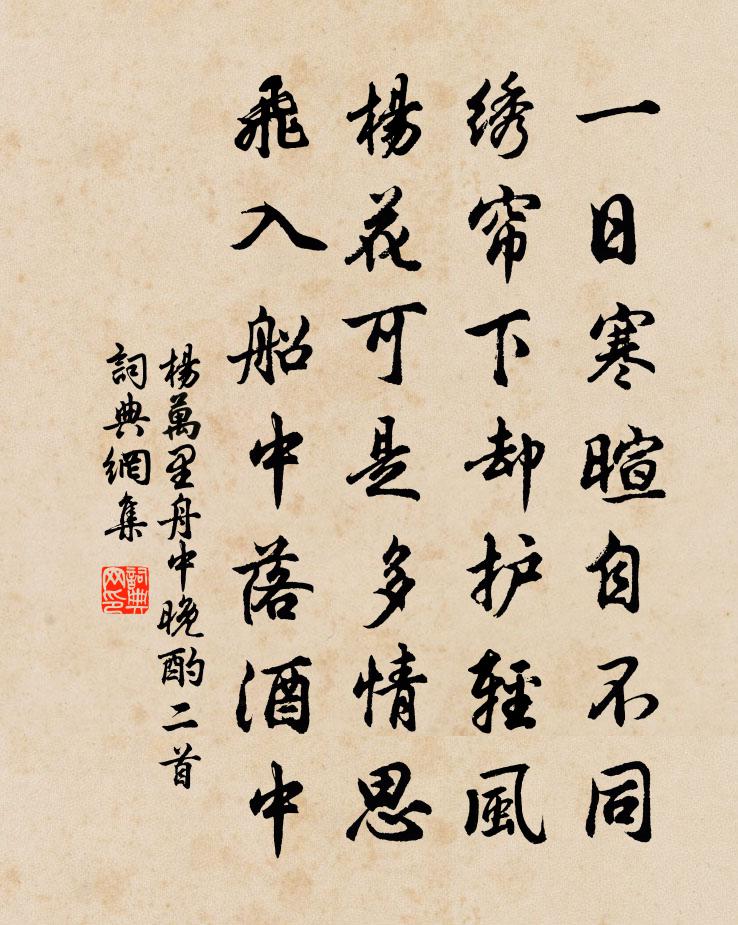 一日寒暄自不同
绣帘下却护輕風
楊花可是多情思
飛入船中落酒中
楊萬里舟中晚酌二首
詞典網集
詞典網印